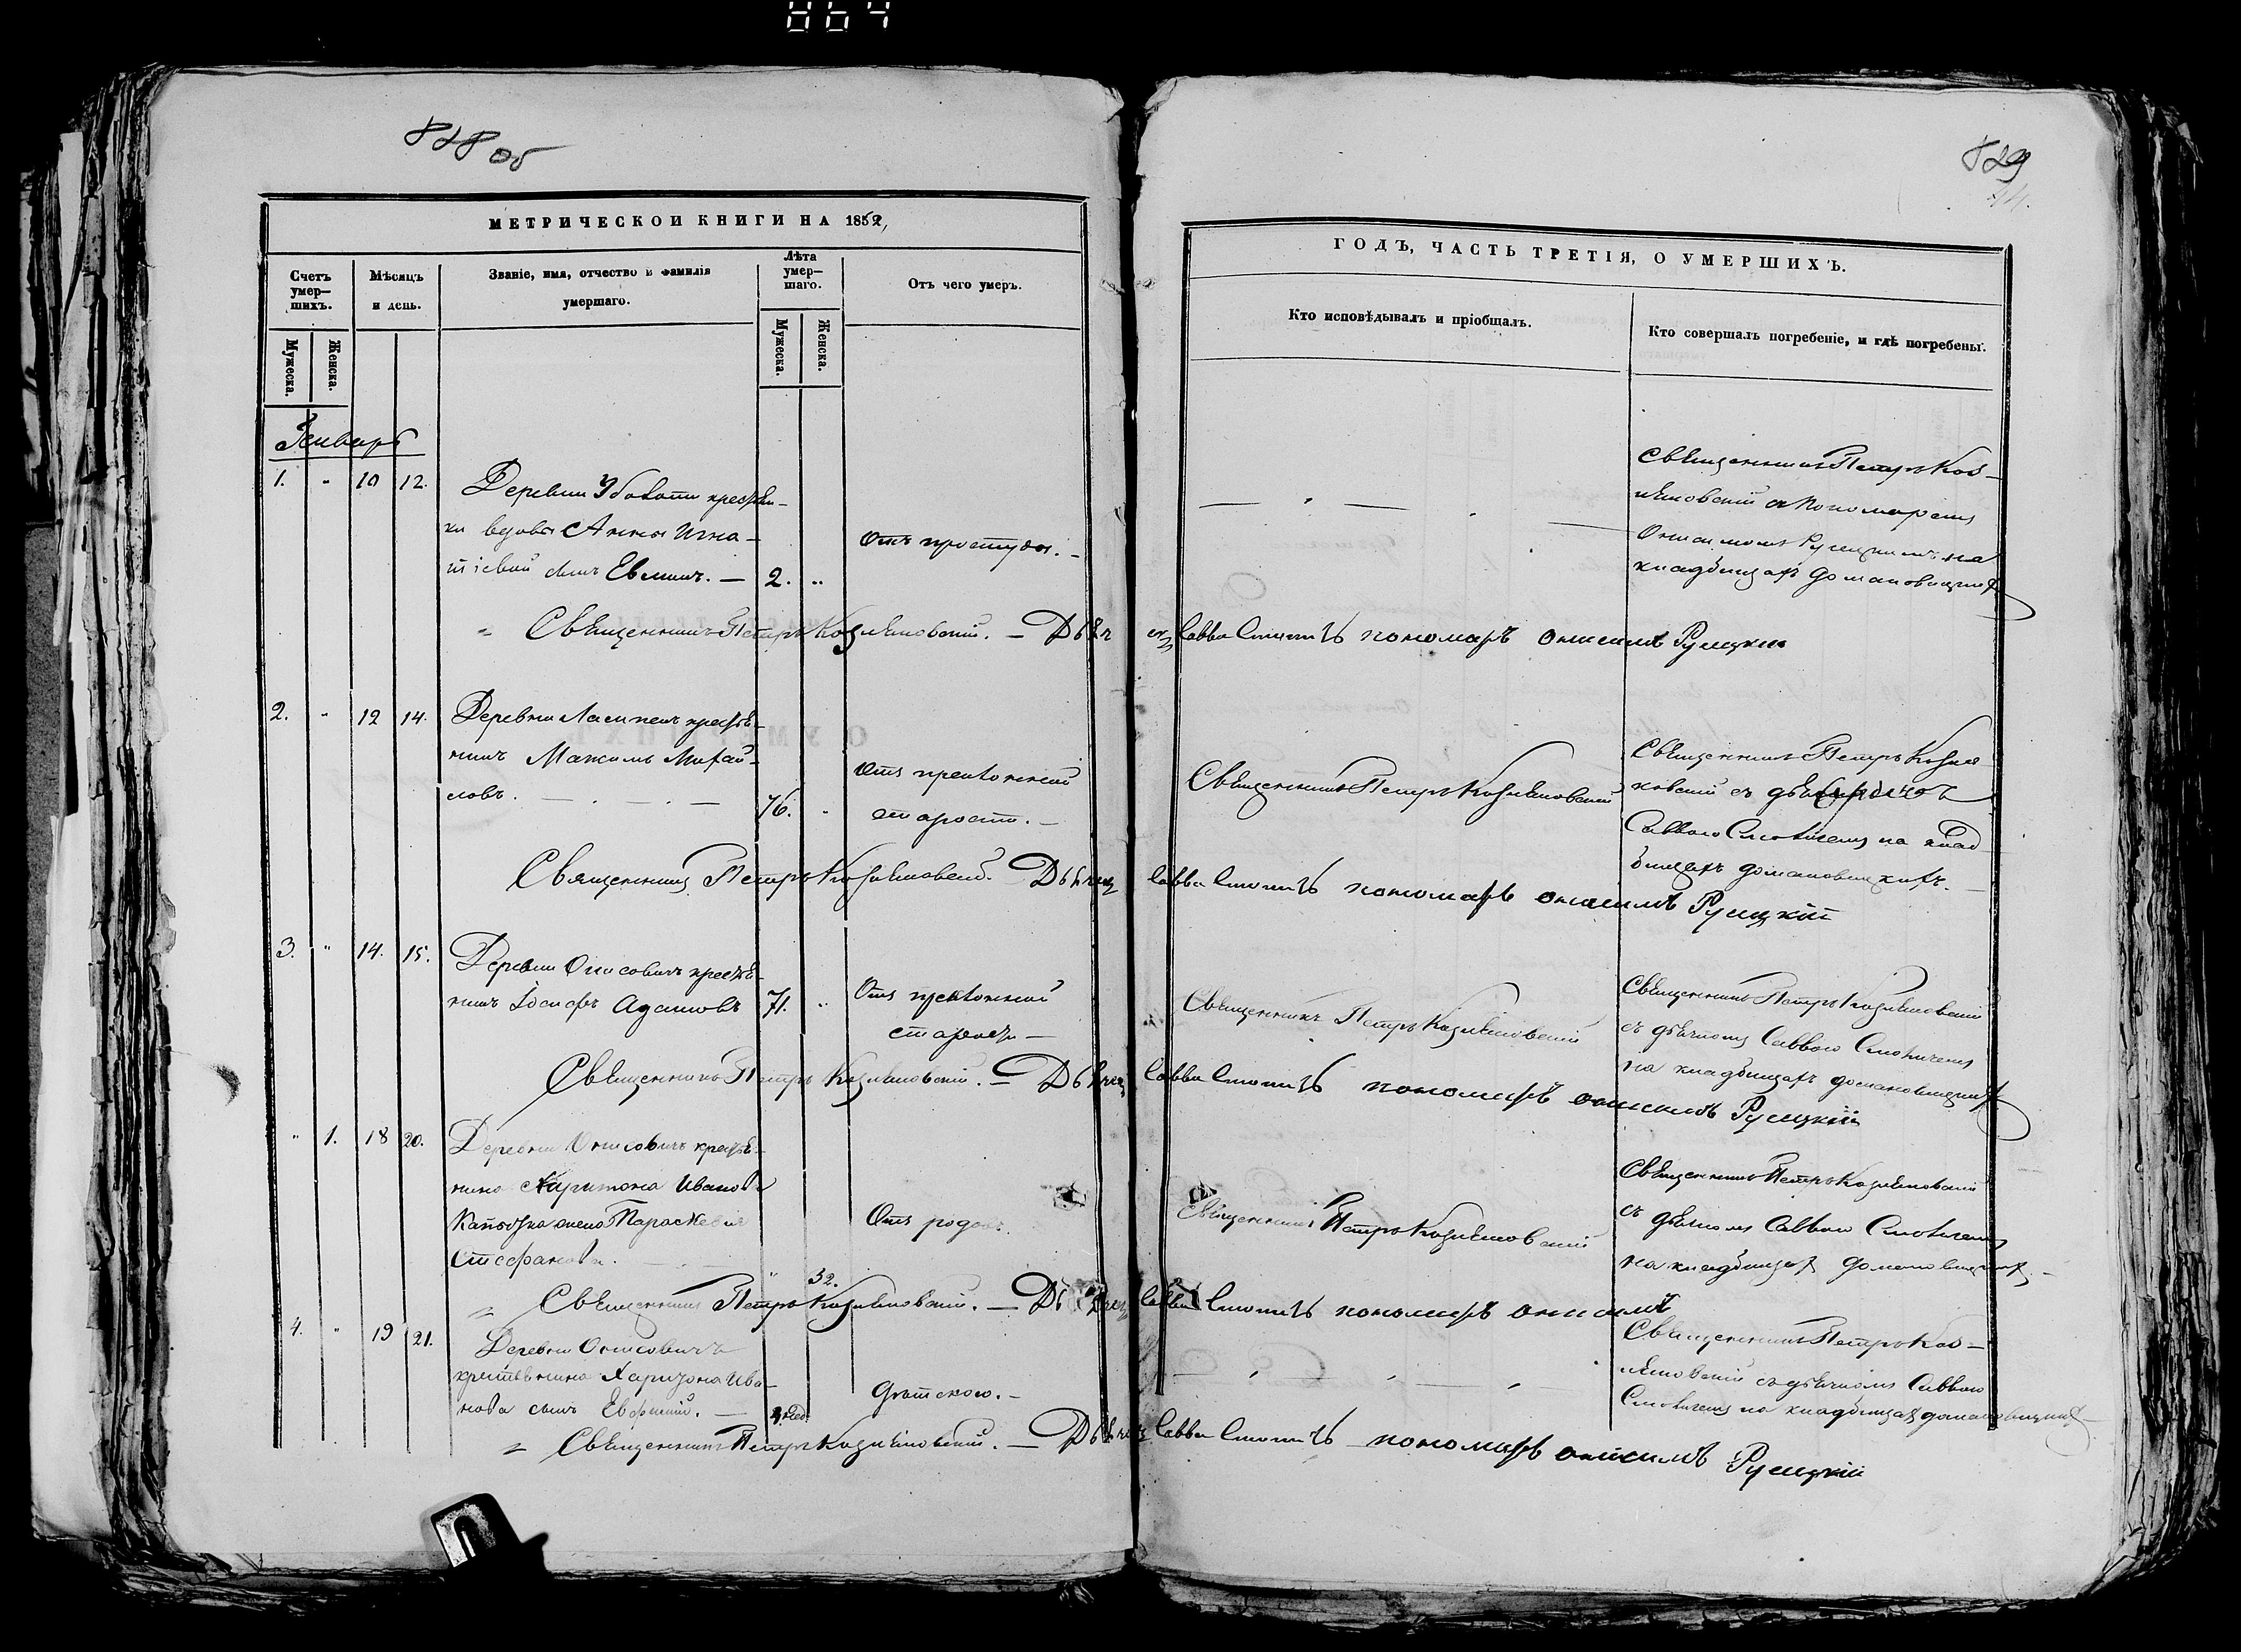 864
828 об
829
МЕТРИЧЕСКОЙ КНИГИ НА 1852,
ГОДЪ, ЧАСТЬ ТРЕТІЯ, О УМЕРШИХЪ.
Счетъ умер—шихъ.
Мѣсяцъ и день.
Званіе, имя, отчество и фамилія умершаго.
Лѣта умер—шаго.
Отъ чего умеръ.
Кто исповѣдывалъ и пріобщалъ.
Кто совершалъ погребеніе, и гдѣ погребены.
Мужеска.
Женска.
Мужеска.
Женска.
Январь
1. " 10 12.
Деревни
ки вдовы Анны Игна-
тіевой сынъ — 2. "
Отъ простуды. -
Священникъ Петръ Коз-
лѣновскій съ Пономаремъ
Онисимомъ Русецкимъ на
кладбищахъ Домановицкихъ
Священникъ Петръ Козлѣновскій. — Дьячекъ Савва Смоличъ пономарь Онисимъ Русецкій
2. " 12 14.
Деревни крестья-
нинъ Максимъ Михай-
ловъ. — 76. "
Отъ преклонной
старости. —
Священникъ Петръ Козлѣновскій
Священникъ Петръ Козлѣ
новскій съ
Саввою Смоличемъ на клад-
бищахъ Домановицкихъ. —
Священникъ Петръ Козлѣновскій. Дьячекъ Савва Смоличъ пономарь Онисимъ Русецкій
3. " 14. 15.
Деревни Онисовичъ крестья-
нинъ Іосифъ Адамовъ 71. "
Отъ преклонной
старости —
Священникъ Петръ Козлѣновскій
Священникъ Петръ Козлѣновскій
съ дьячкомъ Саввою Смоличемъ
на кладбищахъ Домановицкихъ
Священникъ Петръ Козлѣновскій. — Дьячекъ Савва Смоличъ пономарь Онисимъ Русецкій
" 1. 18 20.
Деревни Онисовичъ крестья-
нина Харитона Иванова
жена Параскевія
Стефанова. — " 32.
Отъ родовъ.
Священникъ Петръ Козлѣновскій
Священникъ Петръ Козлѣновскій
съ дьячкомъ Саввою Смоличемъ
на кладбищахъ Домановицкихъ —
Священникъ Петръ Козлѣновскій. — Дьячекъ Савва Смоличъ пономарь Онисимъ
4. " 19 21.
Деревни Онисовичъ
крестьянина Харитона Ива-
нова сынъ Евфимій. —
Дѣтскою. —
Священникъ Петръ Коз-
лѣновскій съ дьячкомъ Саввою
Смоличемъ на кладбищахъ Домановицкихъ
Священникъ Петръ Козлѣновскій. — Дьячекъ Савва Смоличъ пономарь Онисимъ Русецкій